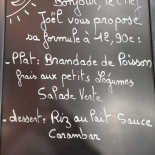 Bonjour, le Chef
Joël vous propose
sa formule à 12,90€:
- Plat: Brandade de Poisson
frais aux petits légumes
Salade Verte
- dessert: Riz au lait Sauce
Carambar